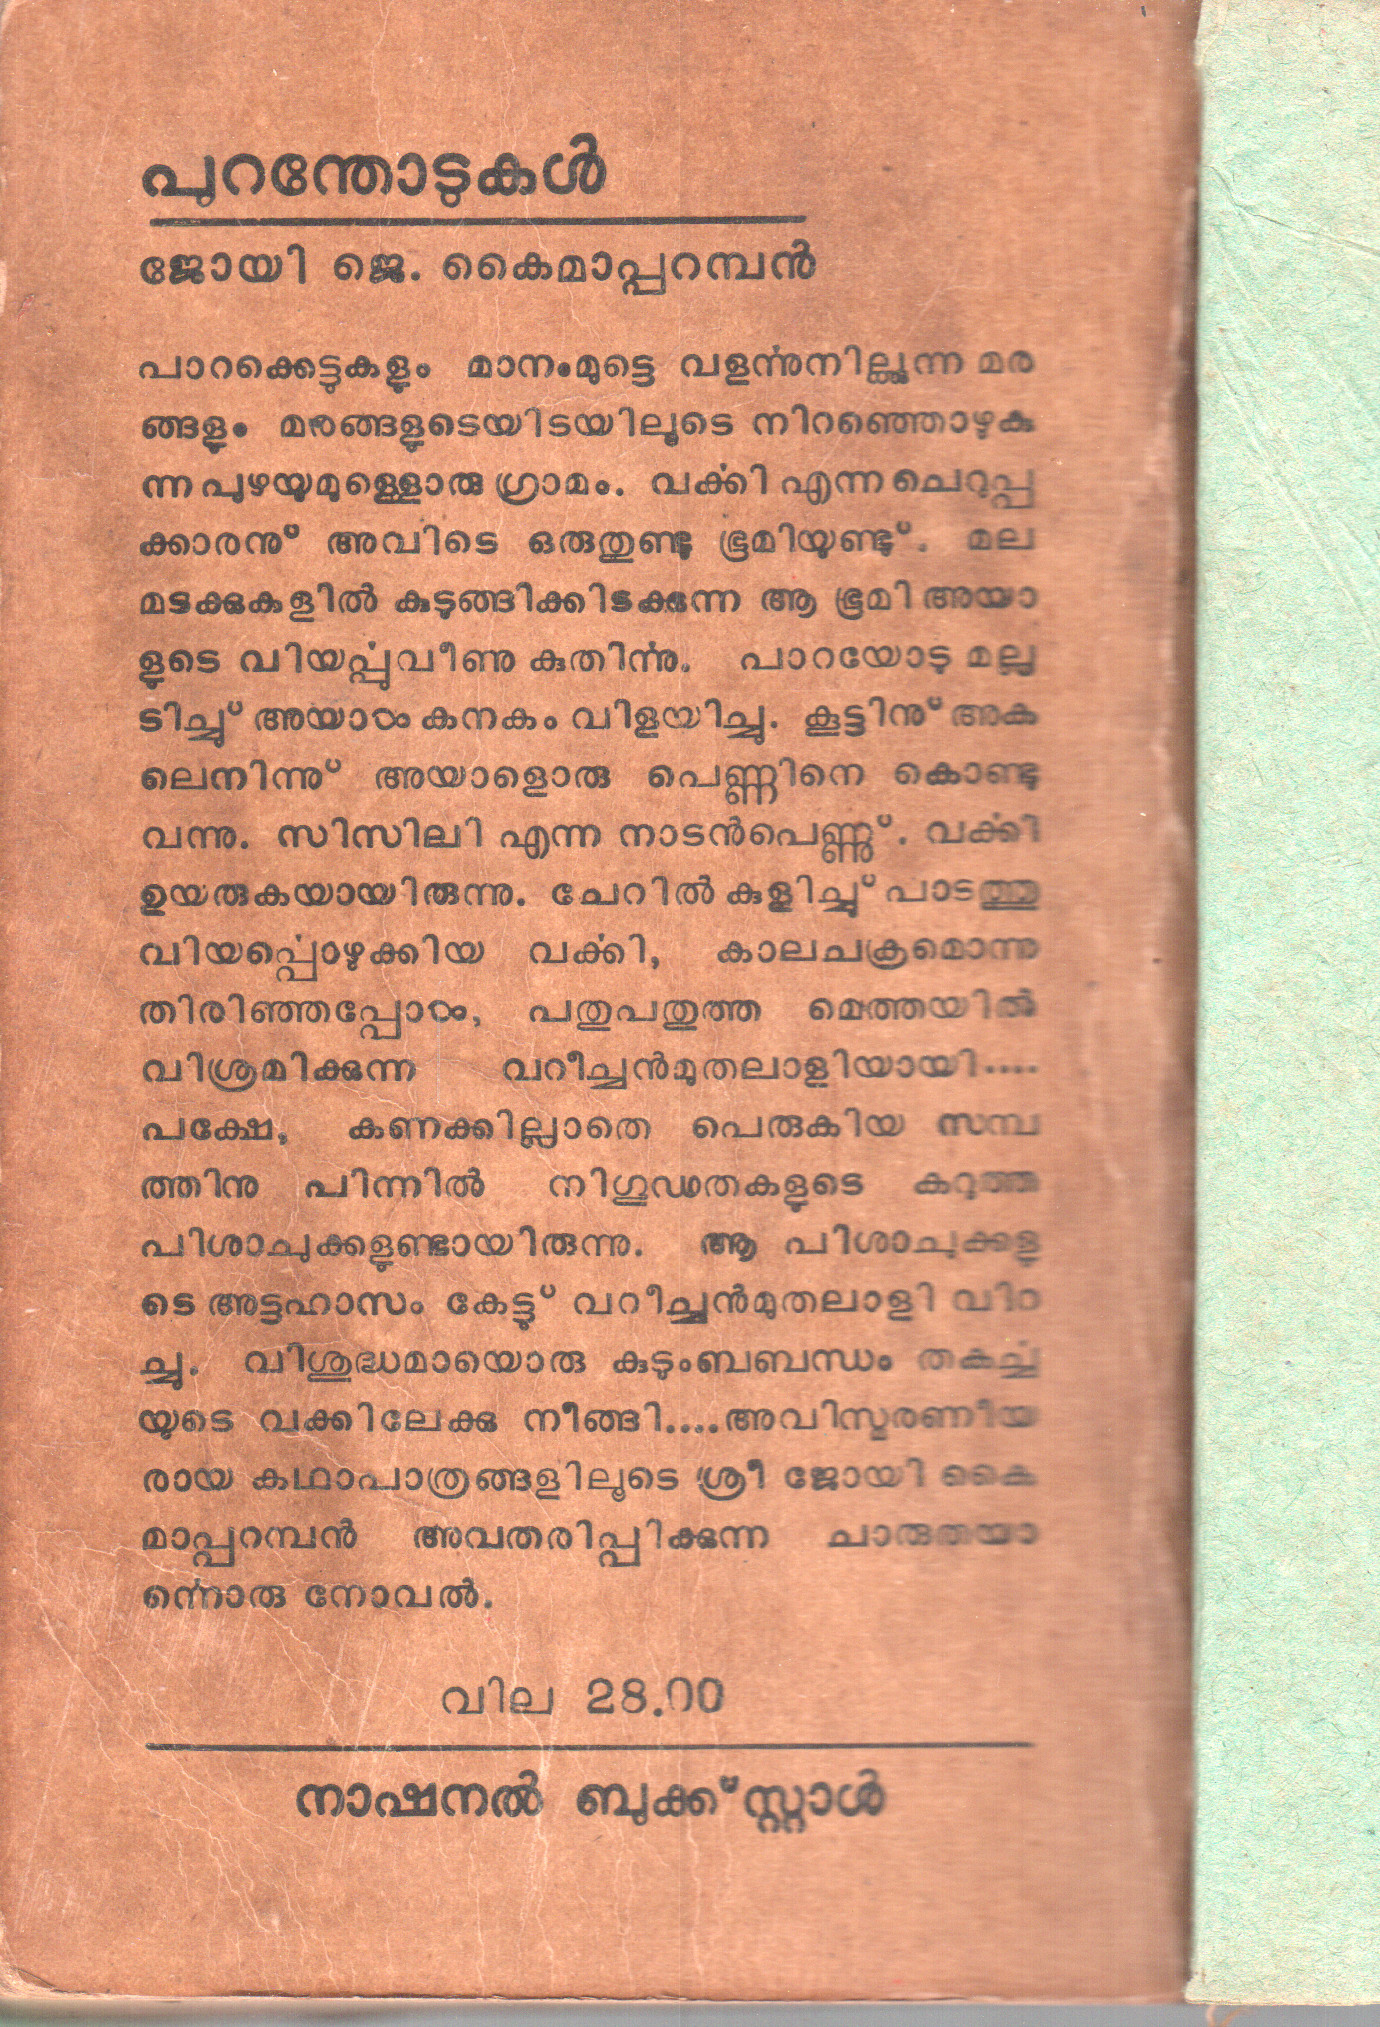 പുറന്തോടുകൾ
ജോയി ജെ. കൈമാപ്പറമ്പൻ
പാറക്കെട്ടുകളും മാനംമുട്ടെ വളൎന്നുനില്ക്കുന്ന മര
ങ്ങളും മരങ്ങളുടെയിടയിലൂടെ നിറഞ്ഞൊഴുകു
ന്ന പുഴയുമുള്ളൊരു ഗ്രാമം. വൎക്കി എന്ന ചെറുപ്പ
ക്കാരനു് അവിടെ ഒരുതുണ്ടു ഭൂമിയുണ്ടു്. മല
മടക്കുകളിൽ കുടുങ്ങിക്കിടക്കുന്ന ആ ഭൂമി അയാ
ളുടെ വിയൎപ്പുവീണു കുതിൎന്നു. പാറയോടു മല്ല
ടിച്ചു് അയാൾ കനകം വിളയിച്ചു. കൂട്ടിനു് അക
ലെനിന്നു് അയാളൊരു പെണ്ണിനെ കൊണ്ടു
വന്നു. സിസിലി എന്ന നാടൻപെണ്ണു്. വൎക്കി
ഉയരുകയായിരുന്നു. ചേറിൽ കുളിച്ചു് പാടത്തു
വിയൎപ്പൊഴുക്കിയ വൎക്കി, കാലചക്രമൊന്നു
തിരിഞ്ഞപ്പോൾ, പതുപതുത്ത മെത്തയിൽ
വിശ്രമിക്കുന്ന വറീച്ചൻമുതലാളിയായി....
പക്ഷേ, കണക്കില്ലാതെ പെരുകിയ സമ്പ
ത്തിനു പിന്നിൽ നിഗൂഢതകളുടെ കറുത്ത
പിശാചുക്കളുണ്ടായിരുന്നു. ആ പിശാചുക്കളു
ടെ അട്ടഹാസം കേട്ടു് വറീച്ചൻമുതലാളി വിറ
ച്ചു. വിശുദ്ധമായൊരു കുടുംബബന്ധം തകൎച്ച
യുടെ വക്കിലേക്കു നീങ്ങി....അവിസ്മരണീയ
രായ കഥാപാത്രങ്ങളിലൂടെ ശ്രീ ജോയി കൈ
മാപ്പറമ്പൻ അവതരിപ്പിക്കുന്ന ചാരുതയാ
ൎന്നൊരു നോവൽ.
വില 28.00
നാഷനൽ ബുക്ക്സ്റ്റാൾ